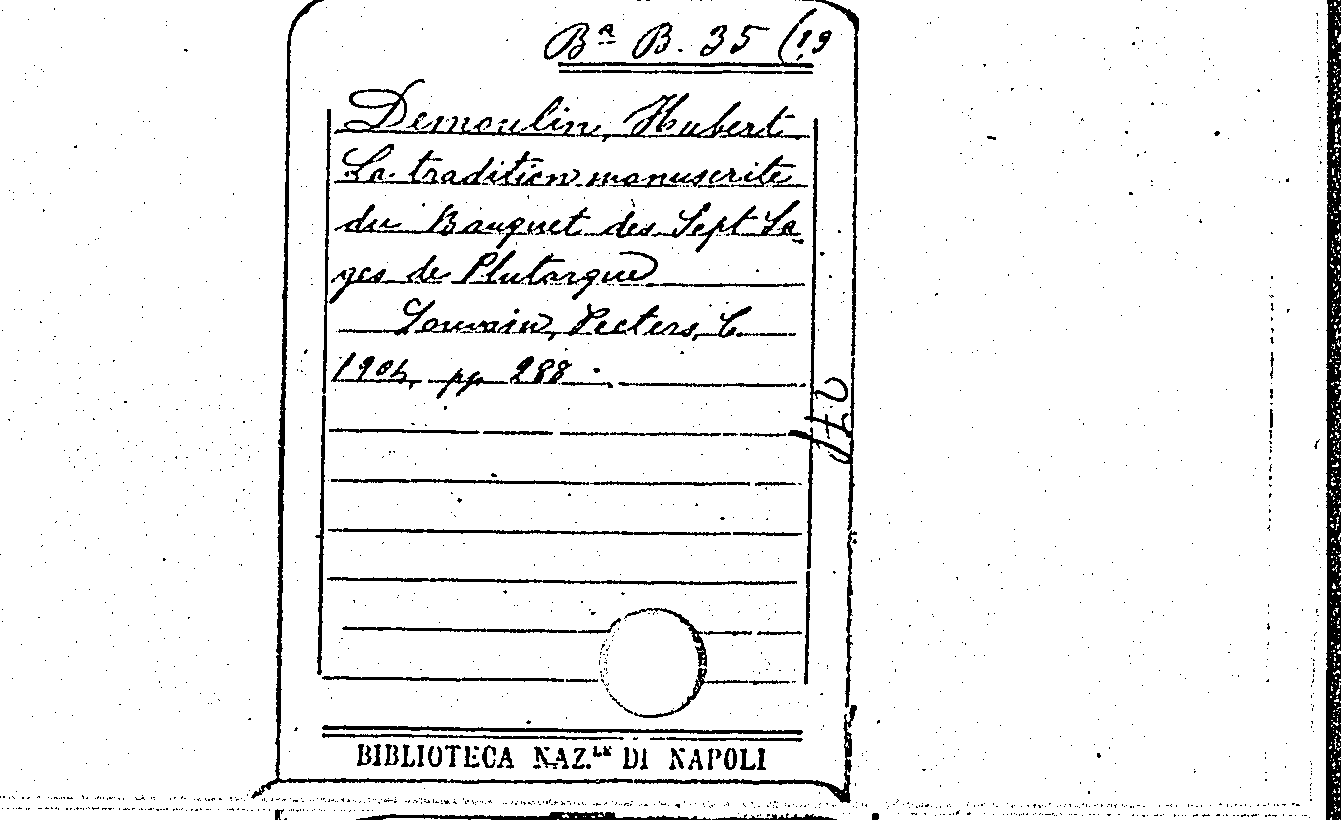 Bª B. 35 (19
Demoulin, Hubert
La tradition manuscrite
du Banquet des Sept Sa
ges de Plutarque
Louvain, Peeters, C.
1904, pp 288.
BIBLIOTECA NAZ.LE DI NAPOLI